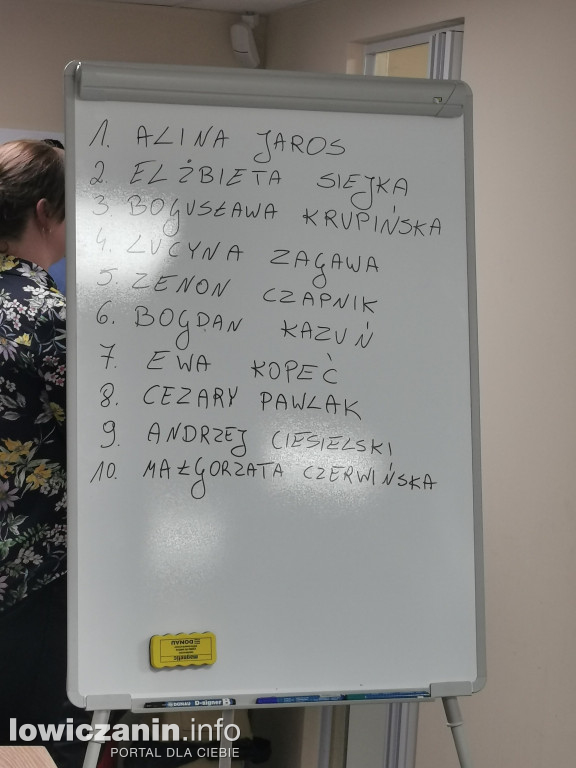 1. ALINA JAROS
2. ELŻBIETA SIEJKA
3. BOGUSŁAWA KRUPIŃSKA
4. LUCYNA ZAGAWA
5. ZENON CZAPNIK
6. BOGDAN KAZUŃ
7. EWA KOPEĆ
8. CEZARY PAWLAK
9. ANDRZEJ CIESIELSKI
10. MAŁGORZATA CZERWIŃSKA
DONAU
magnetic
DONAU D-signer B
lowiczanin.info
PORTAL DLA CIEBIE